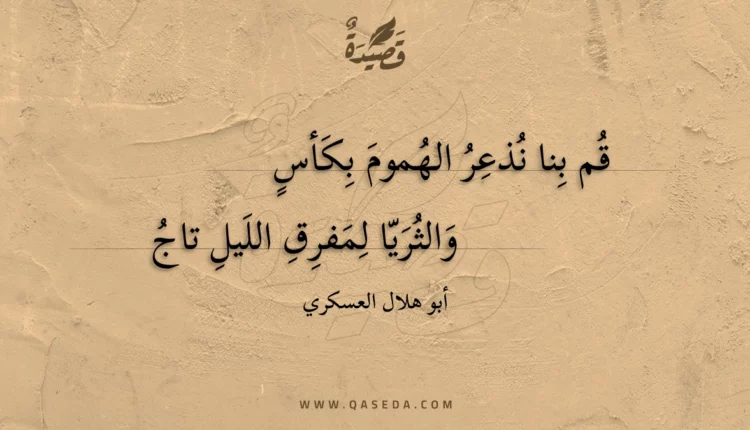 قَصِيدَةٌ
قُم بِنا نُذعِرُ الهُمومَ بِكَأسٍ
وَالثُرَيّا لِمَفرِقِ اللَيلِ تاجُ
أبو هلال العسكري
WWW.QASEDA.COM